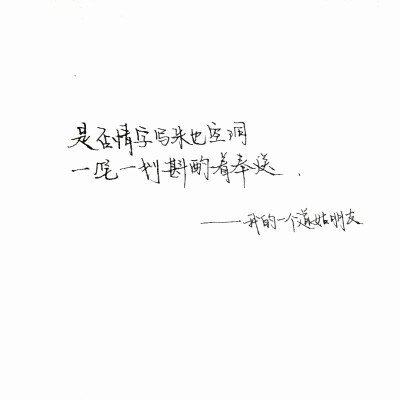 是否情字写来也空洞
一笔一划斟酌着奉送.
——我的一个道姑朋友